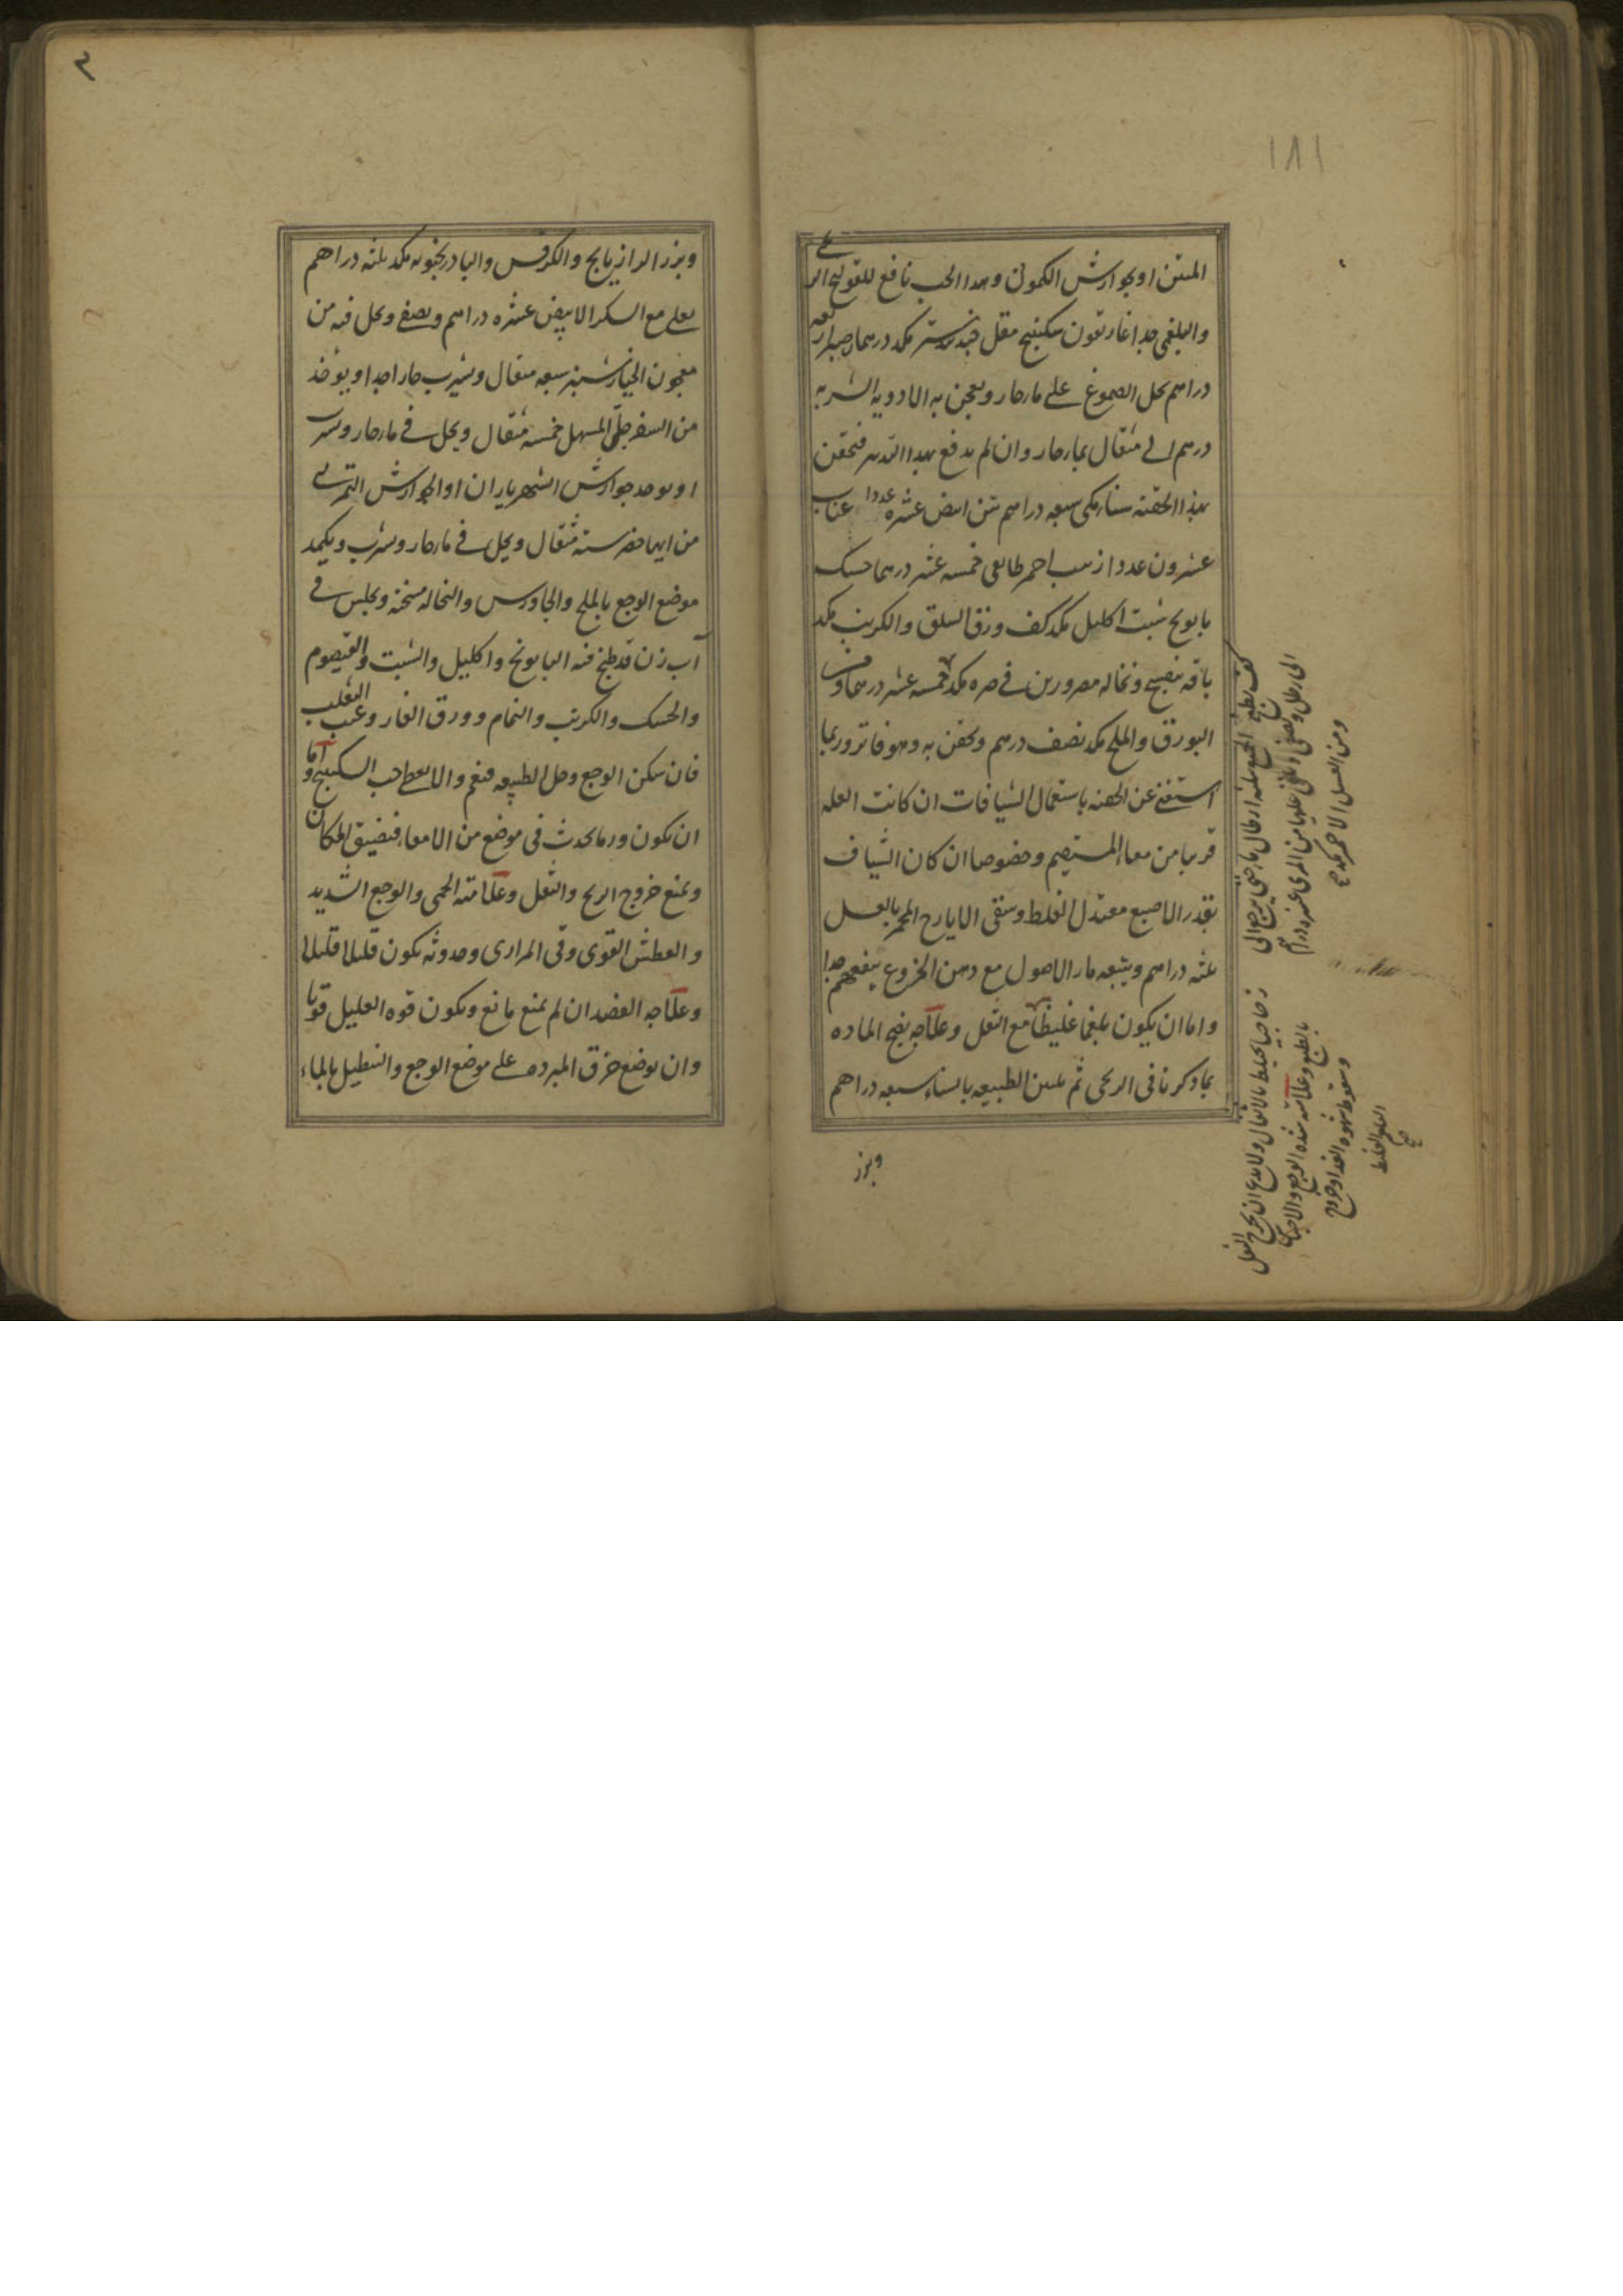 ١٨١
المنتن او بجوارش الكمونى وهذا الحب نافع للقولنج الر
يحى
والبلغمى جدا غاريقون سكبينج مقل جندبيدستر مكد درهمان صبر اربعه
دراهم يحل الصموغ على ماء حار ويعجن به الادويه الشربه
درهم الى مثقال بماء حار وان لم يدفع بهذا التدبير فتحقن
بهذا الحقنه سناء مكى سبعه دراهم تين ابيض عشره عددا عناب
عشرون عددا زبيب احمر طايفى خمسه عشر درهما حسك
بابونج شبت اكليل مكد كف ورق السلق والكرنب مكد
باقه بنفسج ونخاله مصرورين فى صره مكد خمسه عشر درهما و
البورق والملح مكد نصف درهم ويحقن به وهو فاتر وربما
استغنى عن الحقنه باستعمال الشيافات ان كانت العله
قريبا من معاء المستقيم وخصوصا ان كان الشياف
بقدر الاصبع معتدل الغلظ وسقى الايارج المخمر بالعسل
ثلثه دراهم ويتبعه ماء الاصول مع دهن الخروع ينفعهم جدا
واما ان يكون بلغما غليظا مع الثفل وعلاجه نضج الماده
بما ذكرنا فى الريحى ثم تليين الطبيعه بالسناء سبعه دراهم
وبزر
كف يطبخ الجميع بثلثه ارطال ماء حتى يرجع الى
الى رطل ويصفى ويلقى عليها من المرى عشره دراهم
ومن العسل الاحمر مكد
زجاجيا يختلط بالاثفال ولا يدع ان يخرج الثفل
بالطبع وعلامته شده الوجع والاحتباس
وسقوط شهوه الغداء وخروج
البلغم الغليظ
صح
وبزر الرازيانج والكرفس والبادرنجبويه مكد ثلثه دراهم
يغلى مع السكر الابيض عشره دراهم ويصفى ويحل فيه من
معجون الخيارشنبر سبعه مثقال ويشرب حارا جدا او يوخذ
من السفرجلى المسهل خمسه مثقال ويحل فى ماء حار ويشرب
او يوخذ جوارش الشهرياران او الجوارش التمرى
من ايهما حضر سته مثقال ويحل فى ماء حار ويشرب ويكمد
موضع الوجع بالملح والجاورس والنخاله مسخنه ويجلس فى
آب زن قد طبخ فيه البابونج واكليل والشبت والقيصوم
والحسك والكرنب والنمام وورق الغار وعنب الثعلب
فان سكن الوجع وحل الطبيعه فنعم والا يعطى حب السكبينج واما
ان يكون ورما يحدث فى موضع من الامعاء فيضيق المكان
ويمنع خروج الريح والثفل وعلامته الحمى والوجع الشديد
والعطش القوى وقى المرارى وحدوثه يكون قليلا قليلا
وعلاجه الفصد ان لم يمنع مانع ويكون قوه العليل قويا
وان يوضع خرق المبرده على موضع الوجع والتنطيل بالماء